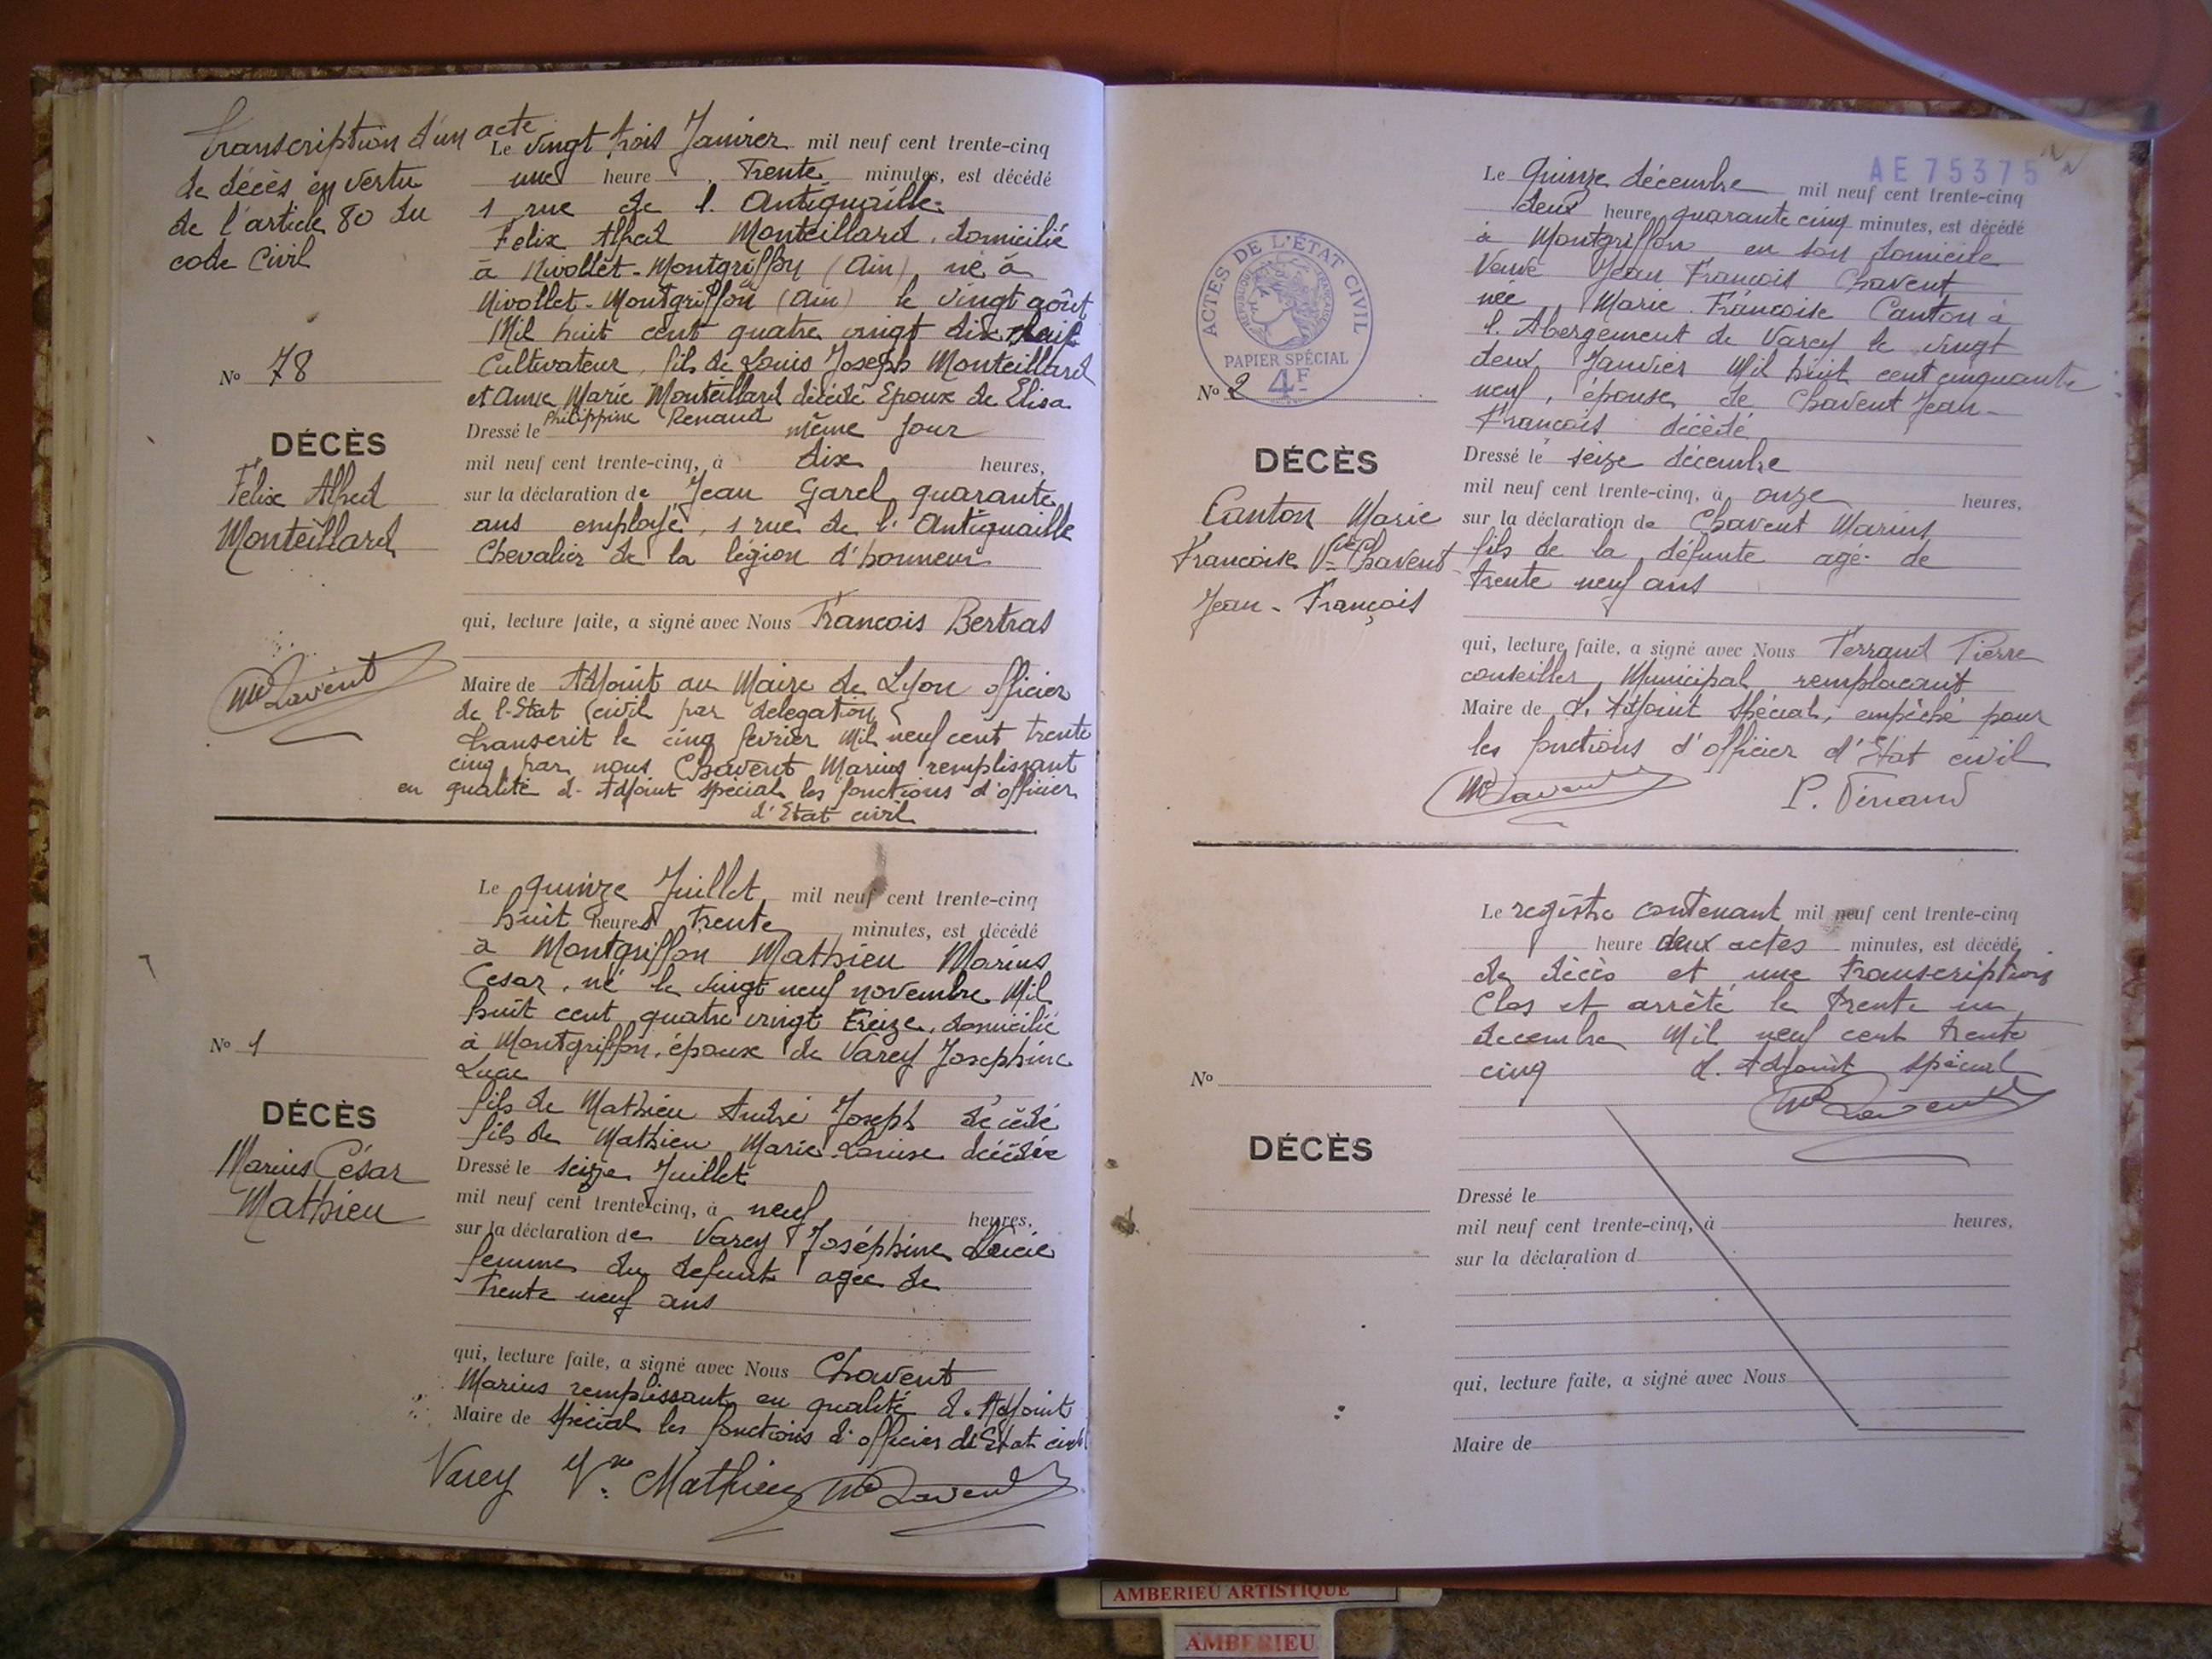 Transcription d'un acte
de décès en vertu
de l'article 80 du
code Civil
No 78
DÉCÈS
Felix Alfred
Monteillard
Le vingt trois Janvier mil neuf cent trente-cinq
une heure, Trente minutes, est décédé
1 rue de l. Antiquaille.
Felix Alfred Monteillard. domicilié
à Nivollet-Montgriffon (Ain), né à
Nivollet-Montgriffon (Ain) le vingt août
Mil huit cent quatre vingt dix
Cultivateur, fils de Louis Joseph Monteillard
et Anne Marie Monteillard décédé Epoux de Elisa
Philippine Renaud
Dressé le même jour
mil neuf cent trente-cinq, à dix heures,
sur la déclaration de Jean Garel quarante
ans employé, 1 rue de l'Antiquaille
Chevalier de la légion d'honneur
qui, lecture faite, a signé avec Nous Francois Bertras
Maire de Adjoint au Maire de Lyon officier
de l-Stat civil par delegation
transcrit le cinq fevrier Mil neuf cent trente
cinq par nous Chavent Marius remplissant
en qualité d- Adjoint spécial les fonctions d'officier
d'Etat civil
MChavent
No 1
DÉCÈS
Marius César
Mathieu
Le quinze Juillet mil neuf cent trente-cinq
huit heures Trente minutes, est décédé
à Montgriffon Mathieu Marius
Cesar, né le vingt neuf novembre Mil
huit cent quatre vingt treize, domicilié
à Montgriffon, époux de Varey Josephine
fils de Mathieu André Joseph décédé
fils de Mathieu Marie-Louise décédée
Dressé le seize Juillet
mil neuf cent trente-cinq, à neuf heures,
sur la déclaration de Varey Joséphine Lucie
femme du defunt agée de
trente neuf ans
qui, lecture faite, a signé avec Nous Chavent
Marius remplissant en qualité d. Adjoint
Maire de spécial les fonctions d'officier d'Etat civil
Varey Vve Mathieu MChavent
AE 75375
ACTES DE L'ÉTAT CIVIL
PAPIER SPÉCIAL
4F
No 2
DÉCÈS
Canton Marie
Francoise Vve Chavent
Jean-François
Le Quinze décembre mil neuf cent trente-cinq
deux heure quarante cinq minutes, est décédé
à Montgriffon en son domicile
Veuve Jean François Chavent
née Marie Françoise Canton à
l. Abergement de Varey le vingt
deux Janvier Mil huit cent cinquante
neuf, épouse de Chavent Jean-
François décédé
Dressé le seize décembre
mil neuf cent trente-cinq, à onze heures,
sur la déclaration de Chavent Marius
fils de la défunte agé de
trente neuf ans
qui, lecture faite, a signé avec Nous Ferrand Pierre
conseiller Municipal remplacant
Maire de l. Adjoint Spécial, empêché pour
les fonctions d'officier d'Etat civil
MChavent P. Ferrand
Le registre contenant mil neuf cent trente-cinq
heure deux actes minutes, est décédé
de décès et une transcription
Clos et arrêté le trente un
decembre Mil neuf cent trente
cinq l. Adjoint spécial
MChavent
No
DÉCÈS
Dressé le
mil neuf cent trente-cinq, à heures,
sur la déclaration d
qui, lecture faite, a signé avec Nous
Maire de
AMBERIEU ARTISTIQUE
AMBERIEU